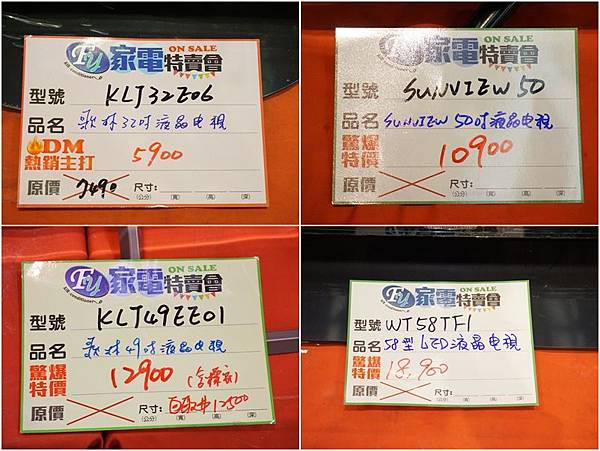 FU 家電特賣會 ON SALE
型號 KLJ32E06
品名 歌林32吋液晶电視
DM熱銷主打 5900
原價 7490 尺寸:
(公分) (寬) (高) (深)
FU 家電特賣會 ON SALE
型號 SUNVIEW 50
品名 SUNVIEW 50吋液晶电視
驚爆特價 10900
原價 尺寸:
(公分) (寬) (高) (深)
FU 家電特賣會 ON SALE
型號 KLT49EE01
品名 歌林49吋液晶电視
驚爆特價 12900 (含桿裝)
原價 尺寸: 自取件12500
(公分) (寬) (高) (深)
FU 家電特賣會 ON SALE
型號 WT58TF1
品名 58型LED液晶电視
驚爆特價 18,900
原價 尺寸:
(公分) (寬) (高) (深)